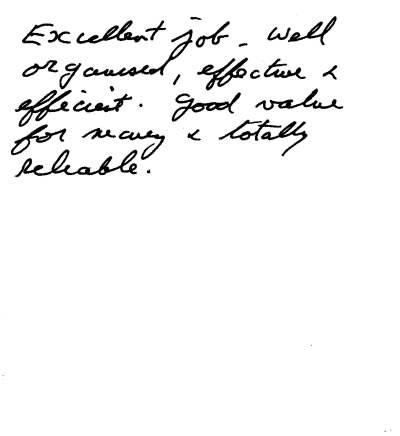 Excellent job - well
organised, effective &
efficient. Good value
for money & totally
reliable.